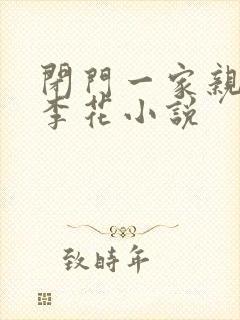 閉門一家親
李花小説
致時年